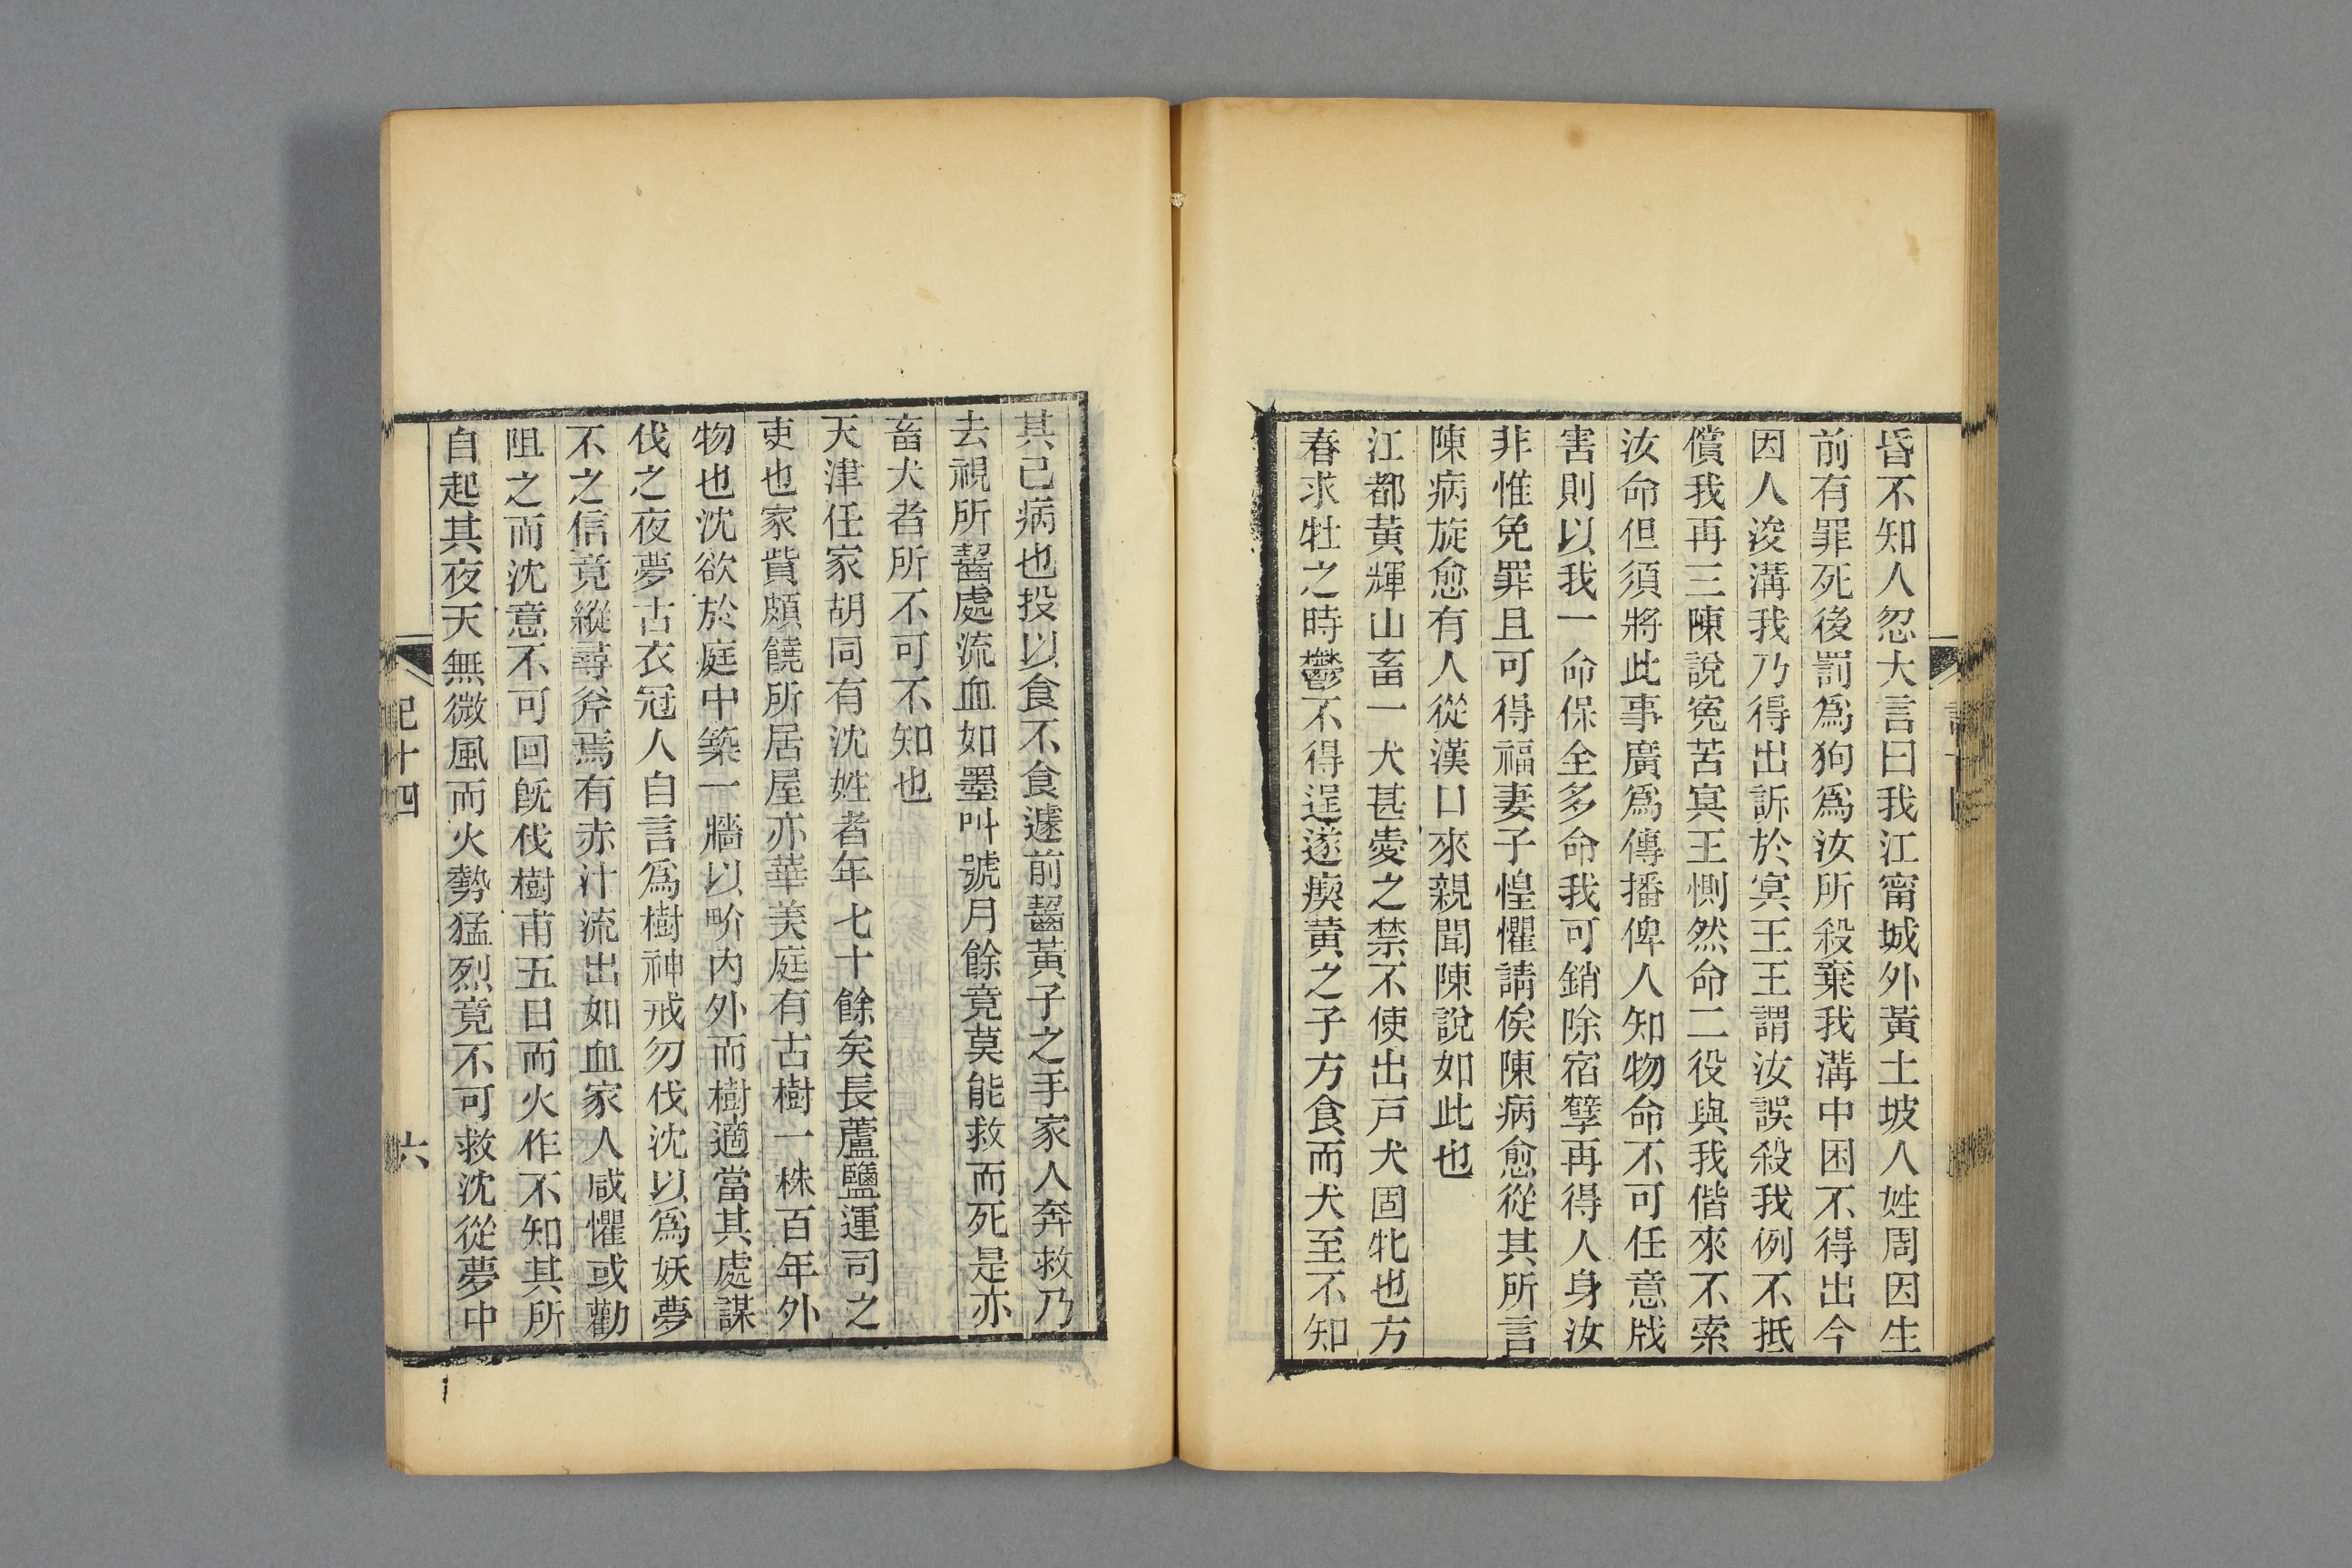 昏不知人忽大言曰我江甯城外黃土坡人姓周因生
前有罪死後罰爲狗爲汝所殺棄我溝中困不得出今
因人浚溝我乃得出訴於冥王王謂汝誤殺我例不抵
償我再三陳說寃苦冥王惻然命二役與我偕來不索
汝命但須將此事廣爲傳播俾人知物命不可任意戕
害則以我一命保全多命我可銷除宿孽再得人身汝
非惟免罪且可得福妻子惶懼請俟陳病愈從其所言
陳病旋愈有人從漢口來親聞陳說如此也
江都黃輝山畜一犬甚愛之禁不使出戸犬固牝也方
春求牡之時鬱不得逞遂瘈黃之子方食而犬至不知
其已病也投以食不食遽前齧黃子之手家人奔救乃
去視所齧處流血如墨叫號月餘竟莫能救而死是亦
畜犬者所不可不知也
天津任家胡同有沈姓者年七十餘矣長蘆鹽運司之
吏也家貲頗饒所居屋亦華美庭有古樹一株百年外
物也沈欲於庭中築一牆以畍內外而樹適當其處謀
伐之夜夢古衣冠人自言爲樹神戒勿伐沈以爲妖夢
不之信竟縱尋斧焉有赤汁流出如血家人咸懼或勸
阻之而沈意不可回旣伐樹甫五日而火作不知其所
自起其夜天無微風而火勢猛烈竟不可救沈從夢中
記十四
六